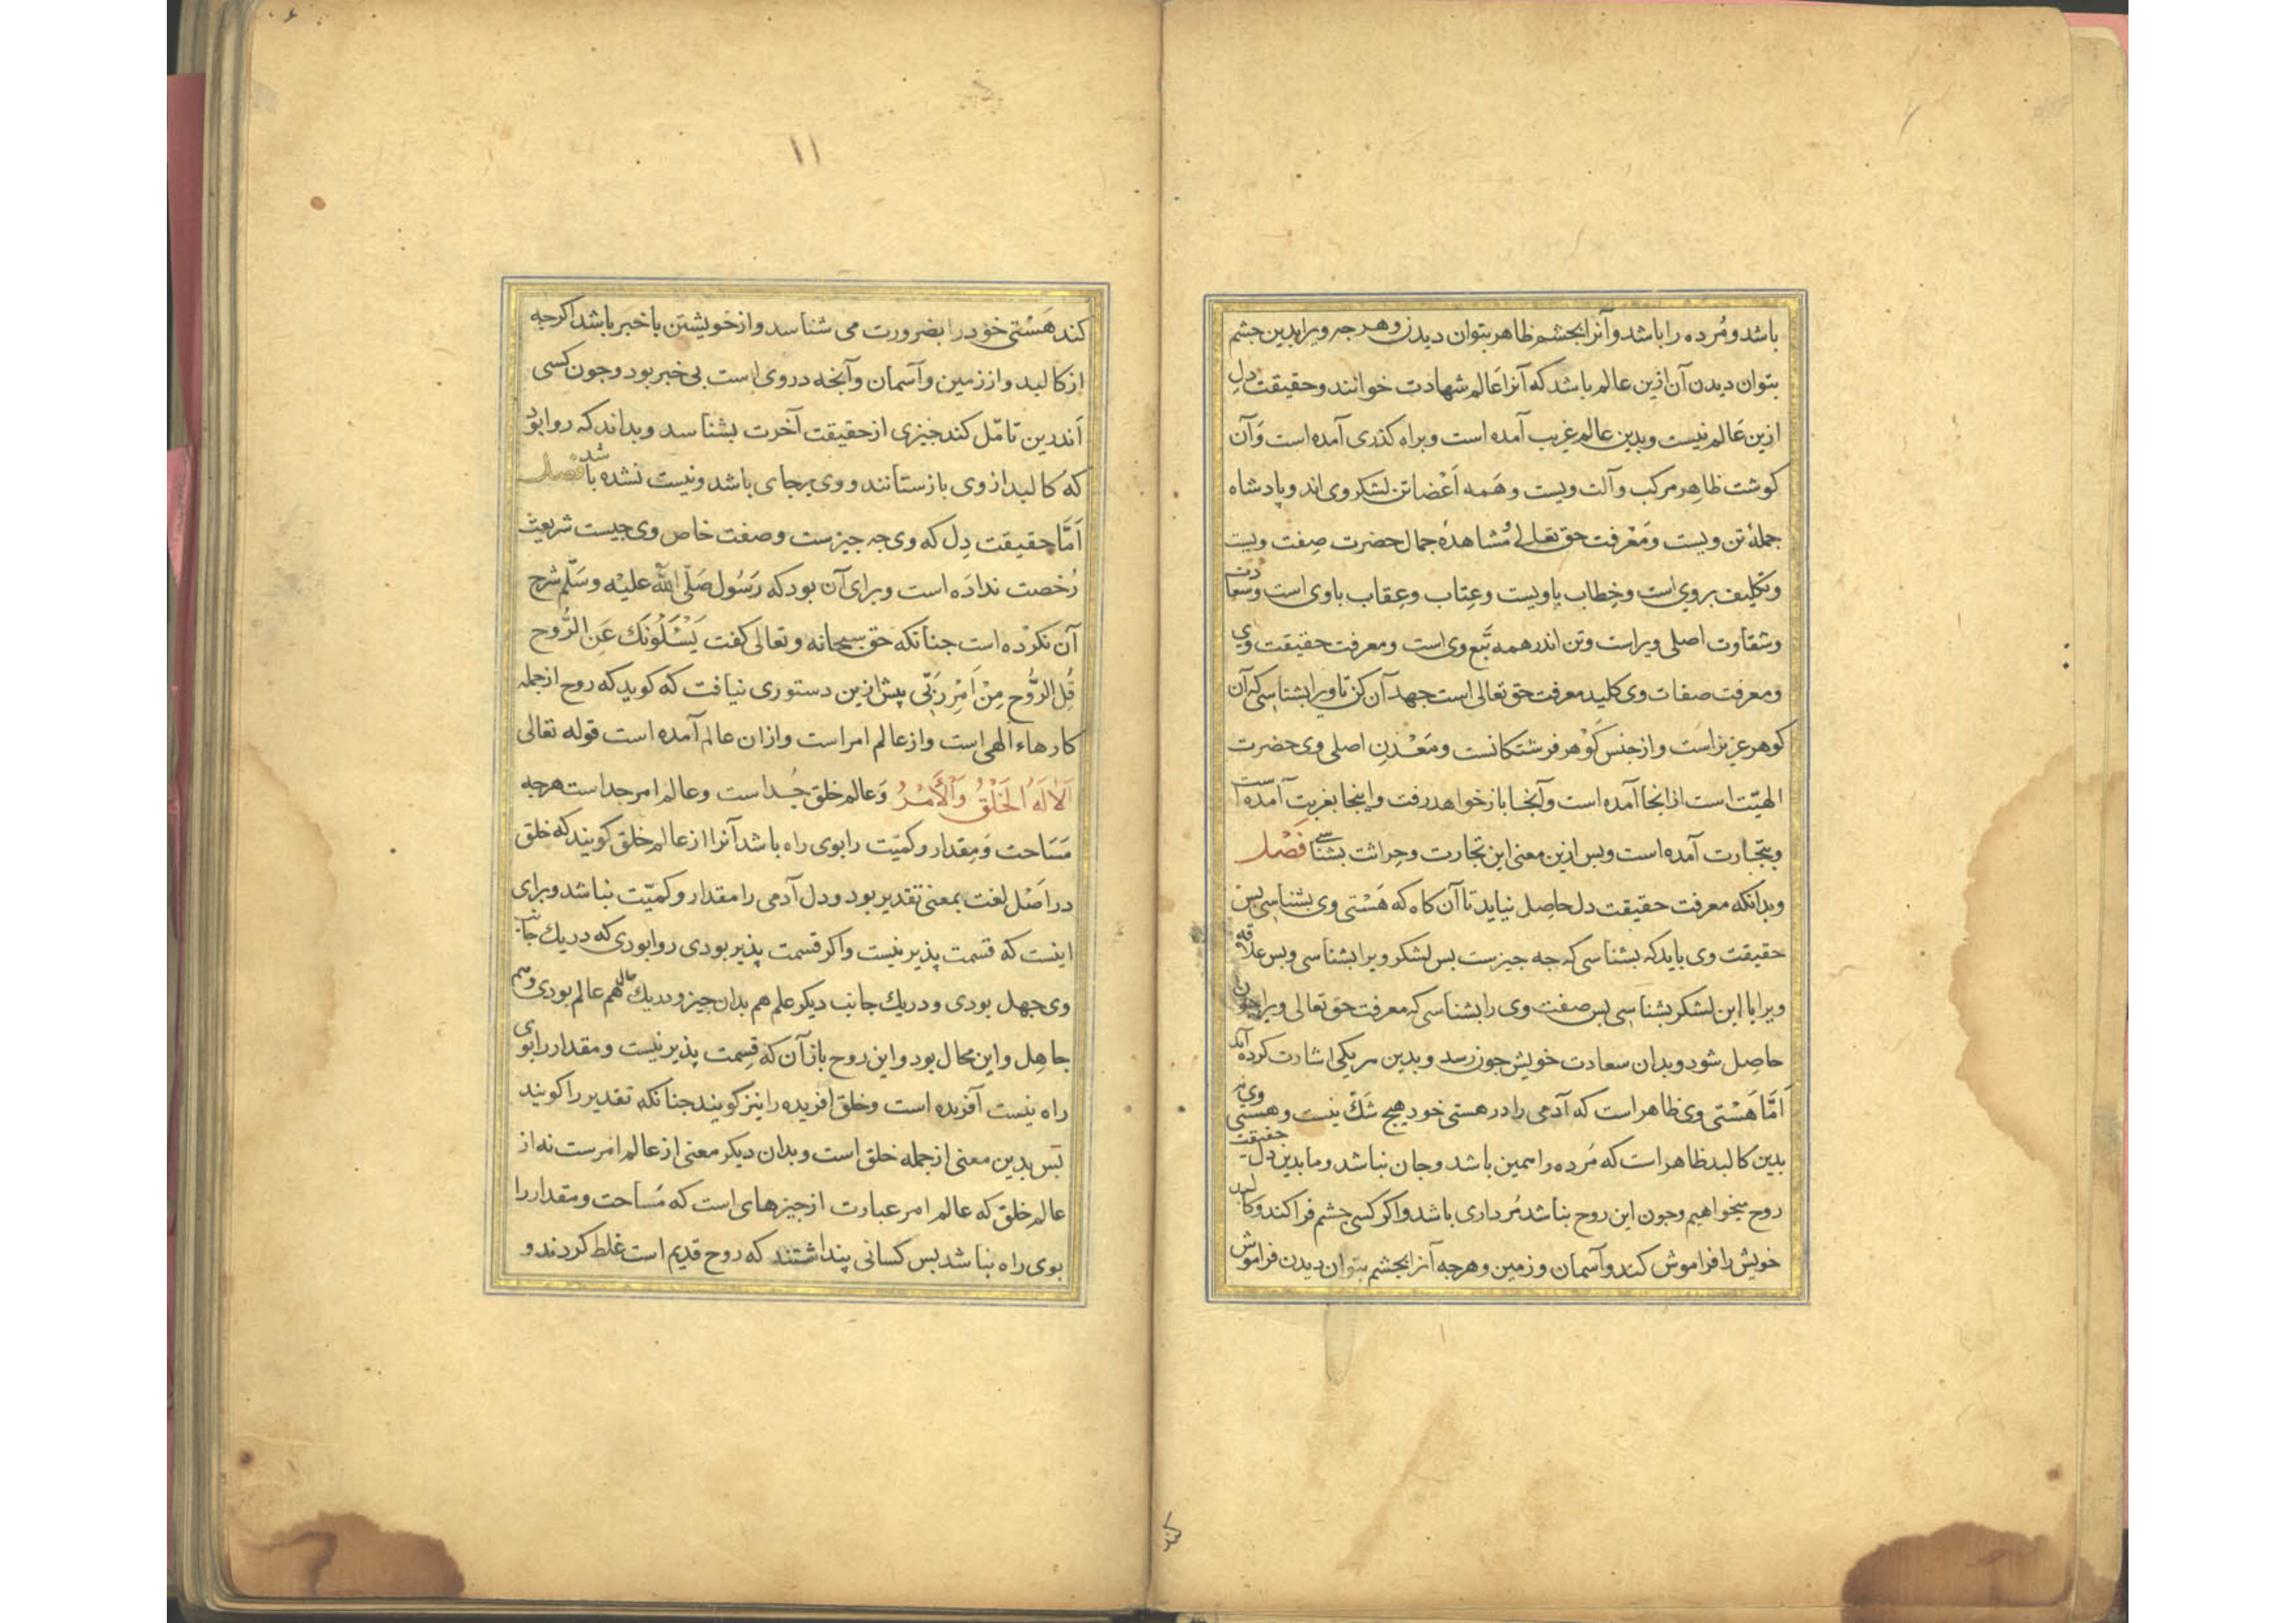 باشد و مُرده را باشد و آنرا بجشم ظاهر بتوان دیدن و هر جه ویرا بدین جشم
بتوان دیدن آن ازین عالم باشد که آنرا عَالم شهادت خوانند و حقیقت دلِ
ازین عَالم نیست و بدین عالم غریب آمده است و براه کذری آمده است وَ آن
کوشت ظاهِر مرکب و آلت ویست و هَمه اَعْضا تن لشکر وی اند و پادشاه
جملهٔ تن ویست و مَعْرفت حق تعالی و مُشاهدهٔ جمال حضرت صِفت ویست
و تکلیف بر وی است و خِطاب با ویست و عِتاب و عِقاب با وی است و سعادت
و شقاوت اصلی ویراست و تن اندر همه تَبع وی است و معرفت حقیقت وی
و معرفت صفات وی کلید معرفت حق تعالی است جهد آن کن تا ویرا بشناسی که آن
کوهر عزیز است و از جنس کَوْهر فرشتکانست و مَعْدنِ اصلی وی حضرت
الهیّت است از انجا آمده است و آنجا باز خواهد رفت و اینجا بغربت آمده است
و بتجارت آمده است و بس ازین معنی این تجارت و حِراثت بشناسی فَصْل
و بدانکه معرفت حقیقت دل حاصِل نیاید تا آن کاه که هَسْتی وی بشناسی بس
حقیقت وی باید که بشناسی که جه جیزست بس لشکر ویرا بشناسی و بس علاقه
ویرا با این لشکر بشناسی بس صفت وی را بشناسی که معرفت حق تعالی ویرا چون
حاصِل شود و بدان سعادت خویش جون رسد و بدین هر یکی اشارت کرده آید
اَمَّا هَسْتی وی ظاهر است که آدمی را در هستی خود هیچ شَکّ نیست و هستی وی نه
بدین کالبد ظاهر است که مُرده را همین باشد و جان نباشد و ما بدین دل حقیقت
روح میخواهیم و جون این روح نباشد مُرداری باشد و اکر کسی جشم فرا کند و کالبد
خویش را فراموش کند و آسمان و زمین و هرجه آنرا بجشم بتوان دیدن فراموش
کند
۱۱
کند هَسْتی خود را بضرورت می شناسد و از خویشتن با خبر باشد اکرجه
از کالبد و از زمین و آسمان و آنجه در وی است بی خبر بود و جون کسی
اَندرین تامّل کند جیزی از حقیقت آخرت بشناسد و بداند که روا بود
که کالبد از وی باز ستانند و وی برجای باشد و نیست نشده باشد فصل
اَمَّا حقیقت دِل که وی جه جیزست و صفت خاص وی جیست شریعت
رُخصت ندادَه است و برای آن بود که رَسُول صَلّی اللّه علیْه وسَلّم شرح
آن نکرْده است جنانکه حق سبحانه و تعالی کفت يَسْئَلُونَكَ عَنِ الرُّوح
قُلِ الرُّوح مِنْ اَمْرِ رَبّی پیش ازین دستوری نیافت که کوید که روح از جمله
کارهاء الهی است و از عالم امر است و ازان عالم آمده است قوله تعالی
اَلَا لَهُ الْخَلْقُ وَالْأَمْرُ وَ عالم خلق جُداست و عالم امر جداست هرجه
مَسَاحت وَ مِقدار و کمیّت را بوی راه باشد آنرا از عالم خلق کویند که خلق
در اَصْل لغت بمعنی تقدیر بود و دل آدمی را مقدار و کمیّت نباشد و برای
اینست که قسمت پذیر نیست و اکر قسمت پذیر بودی روا بودی که در یك جانب
وی جهل بودی و در یك جانب دیکر علم هم بدان جیز و در یك حال هم عالم بودی و هم
جاهِل و این محال بود و این روح باز آن که قِسمت پذیر نیست و مقدار را بوی
راه نیست آفریده است و خلق افریده را نیز کویند جنانکه تقدیر را کویند
بَس بدین معنی از جمله خلق است و بدان دیکر معنی از عالم امرست نه از
عالم خلق که عالم امر عبارت از جیزهای است که مَساحت و مقدار را
بوی راه نباشد بس کسانی پنداشتند که روح قدیم است غلط کردند و